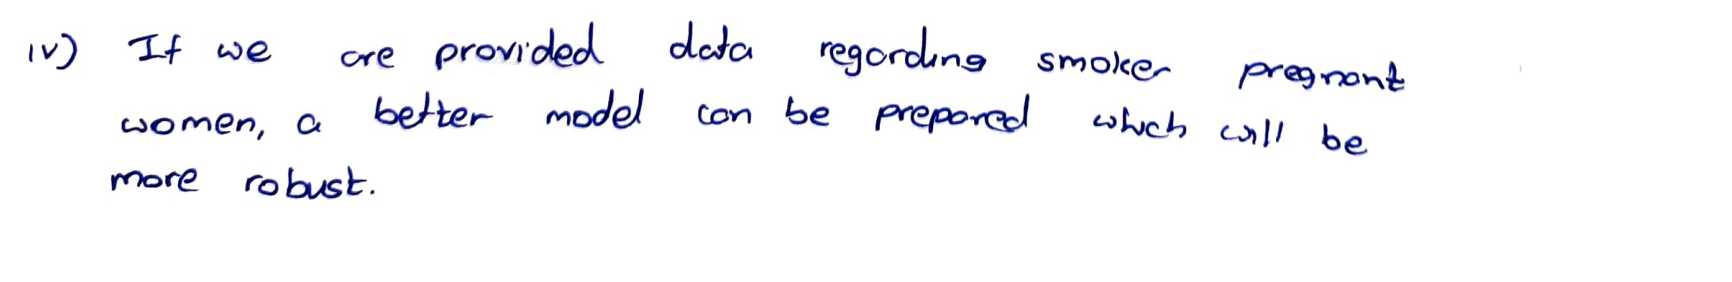 iv) If we are provided data regarding smoker pregnant
women, a better model can be prepared which will be
more robust.